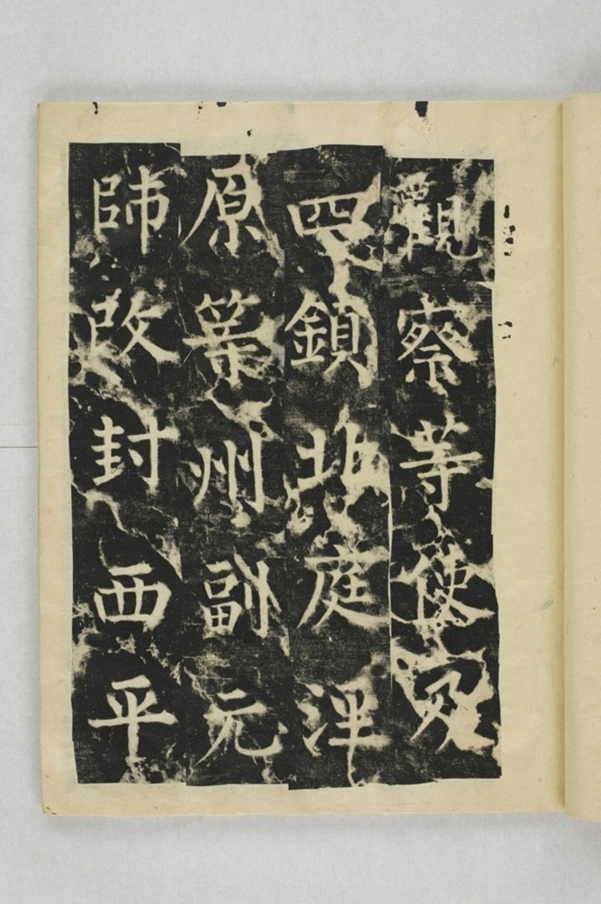 觀察等使及
四鎮北庭涇
原等州副元
帥改封西平